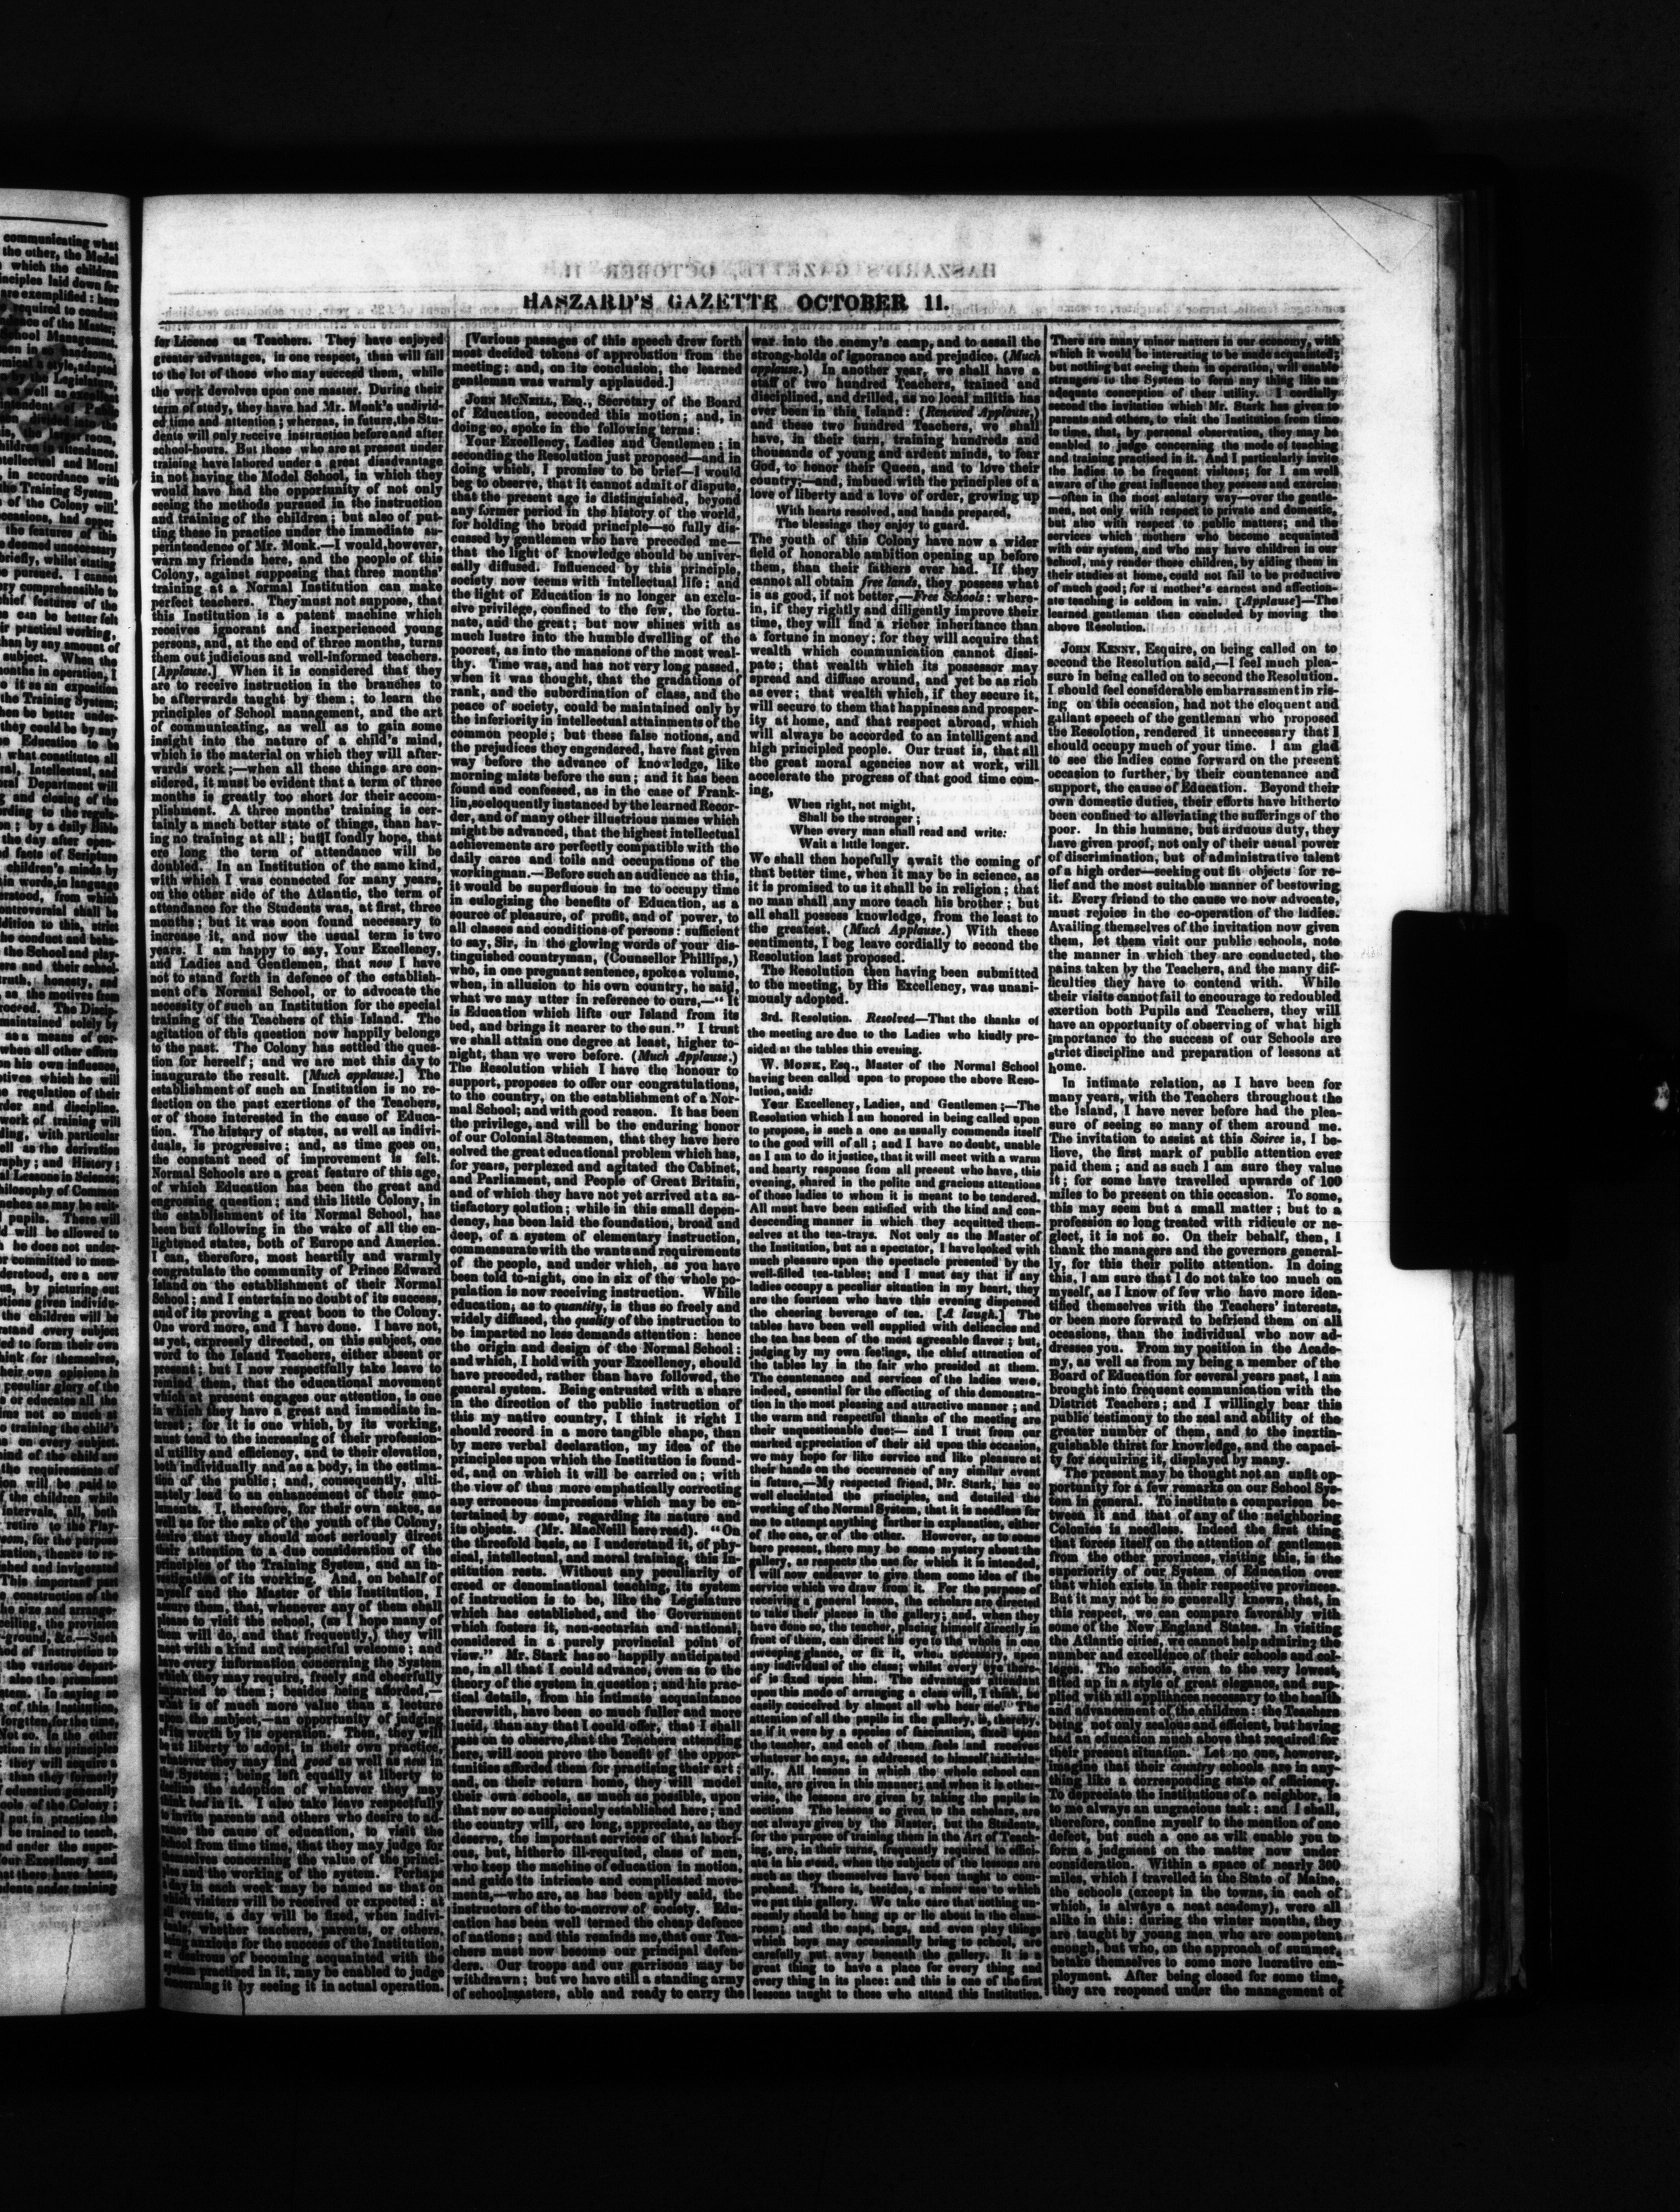 HASZARD'S GAZETTE OCTOBER 11.
for Licence as Teachers. They have enjoyed
greater advantages, in one respect, than will fall
to the lot of those who may succeed them, while
the work devolves upon one master. During their
term of study, they have had Mr. Monk's undivid-
ed time and attention; whereas, in future, the Stu-
dents will only receive instruction before and after
school-hours. But those who are at present under
training have labored under a great disadvantage
in not having the Model School, in which they
would have had the opportunity of not only
seeing the methods pursued in the instruction
and training of the children; but also of put-
ting these in practice under the immediate su-
perintendence of Mr. Monk.—I would, however,
warn my friends here, and the people of this
Colony, against supposing that three months'
training at a Normal Institution can make
perfect teachers. They must not suppose, that
this Institution is a patent machine which
receives ignorant and inexperienced young
persons, and, at the end of three months, turns
them out judicious and well-informed teachers.
[Applause.] When it is considered that they
are to receive instruction in the branches to
be afterwards taught by them; to learn the
principles of School management, and the art
of communicating, as well as to gain some
insight into the nature of a child's mind,
which is the material on which they will after-
wards work;—when all these things are con-
sidered, it must be evident that a term of three
months is greatly too short for their accom-
plishment. A three months' training is cer-
tainly a much better state of things, than hav-
ing no training at all; but I fondly hope, that
ere long the term of attendance will be
doubled. In an Institution of the same kind,
with which I was connected for many years,
on the other side of the Atlantic, the term of
attendance for the Students was, at first, three
months; but it was soon found necessary to
increase it, and now the usual term is two
years. I am happy to say, Your Excellency,
and Ladies and Gentlemen, that now I have
not to stand forth in defence of the establish-
ment of a Normal School, or to advocate the
necessity of such an Institution for the special
training of the Teachers of this Island. The
agitation of this question now happily belongs
to the past. The Colony has settled the ques-
tion for herself; and we are met this day to
inaugurate the result. [Much applause.] The
establishment of such an Institution is no re-
flection on the past exertions of the Teachers,
or of those interested in the cause of Educa-
tion. The history of states, as well as indivi-
duals, is progressive; and, as time goes on,
the constant need of improvement is felt.
Normal Schools are a great feature of this age,
of which Education has been the great and
engrossing question; and this little Colony, in
the establishment of its Normal School, has
been but following in the wake of all the en-
lightened states, both of Europe and America.
I can, therefore, most heartily and warmly
congratulate the community of Prince Edward
Island on the establishment of their Normal
School; and I entertain no doubt of its success,
and of its proving a great boon to the Colony.
One word more, and I have done. I have not,
as yet, expressly directed, on this subject, one
word to the Island Teachers, either absent or
present; but I now respectfully take leave to
remind them, that the educational movement
which at present engages our attention, is one
in which they have a great and immediate in-
terest; for it is one which, by its working,
must tend to the increasing of their profession-
al utility and efficiency, and to their elevation,
both individually and as a body, in the estima-
tion of the public; and, consequently, ulti-
mately lead to an enhancement of their emo-
luments. I, therefore, for their own sakes, as
well as for the sake of the youth of the Colony,
desire that they should most seriously direct
their attention to a due consideration of the
principles of the Training System, and an in-
vestigation of its working. And, on behalf of
myself and the Master of this Institution, I
assure them, that, whenever any of them shall
please to visit the school, (as I hope many of
them will do, and that frequently,) they will
meet with a kind and respectful welcome; and
have every information concerning the System
which they may require, freely and cheerfully
imparted to them; besides being afforded,—
what is of much more value than a lecture
upon the subject,—an opportunity of judging
of its worth by its operation. Then, they will
be at liberty to adopt, in their own practice,
whatever they may find good as well as new in
the System; being left equally at liberty to
decline the adoption of whatever they may
think bad in it. I also take leave respectfully
to invite parents and others who desire to ad-
vance the cause of education, to visit the
School from time time, that they may judge for
themselves concerning the value of the princi-
ples and the working of the system. Perhaps
a day in each week may be named as that on
which visitors will be received or expected: at
all events, a day will be fixed, when indivi-
duals, whether teachers, parents, or others,
being anxious for the success of the Institution,
or desirous of becoming acquainted with the
system practised in it, may be enabled to judge
concerning it by seeing it in actual operation.
[Various passages of this speech drew forth
most decided tokens of approbation from the
meeting; and, on its conclusion, the learned
gentleman was warmly applauded.]
JOHN MCNEILL, Esq., Secretary of the Board
of Education, seconded this motion; and, in
doing so, spoke in the following terms:
Your Excellency, Ladies and Gentlemen; in
seconding the Resolution just proposed—and in
doing which, I promise to be brief—I would
beg to observe, that it cannot admit of dispute,
that the present age is distinguished, beyond
any former period in the history of the world,
for holding the broad principle—so fully dis-
cussed by gentlemen who have preceded me—
that the light of knowledge should be univer-
sally diffused. Influenced by this principle,
society now teems with intellectual life: and
the light of Education is no longer an exclu-
sive privilege, confined to the few, the fortu-
nate, and the great; but now shines with as
much lustre into the humble dwelling of the
poorest, as into the mansions of the most weal-
thy. Time was, and has not very long passed,
when it was thought, that the gradations of
rank, and the subordination of class, and the
peace of society, could be maintained only by
the inferiority in intellectual attainments of the
common people; but these false notions, and
the prejudices they engendered, have fast given
way before the advance of knowledge, like
morning mists before the sun; and it has been
found and confessed, as in the case of Frank-
lin, so eloquently instanced by the learned Recor-
der, and of many other illustrious names which
might be advanced, that the highest intellectual
achievements are perfectly compatible with the
daily cares and toils and occupations of the
workingman.—Before such an audience as this,
it would be superfluous in me to occupy time
in eulogizing the benefits of Education, as a
source of pleasure, of profit, and of power, to
all classes and conditions of persons: sufficient
to say, Sir, in the glowing words of your dis-
tinguished countryman, (Counsellor Phillips,)
who, in one pregnant sentence, spoke a volume,
when, in allusion to his own country, he said,
what we may utter in reference to ours,—"It
is Education which lifts our Island from its
bed, and brings it nearer to the sun." I trust
we shall attain one degree at least, higher to-
night, than we were before. (Much Applause.)
The Resolution which I have the honour to
support, proposes to offer our congratulations,
to the country, on the establishment of a Nor-
mal School; and with good reason. It has been
the privilege, and will be the enduring honor
of our Colonial Statesmen, that they have here
solved the great educational problem which has,
for years, perplexed and agitated the Cabinet,
and Parliament, and People of Great Britain,
and of which they have not yet arrived at a sa-
tisfactory solution; while in this small depen-
dency, has been laid the foundation, broad and
deep, of a system of elementary instruction,
commensurate with the wants and requirements
of the people, and under which, as you have
been told to-night, one in six of the whole po-
pulation is now receiving instruction. While
education, as to quantity, is thus so freely and
widely diffused, the quality of the instruction to
be imparted no less demands attention: hence
the origin and design of the Normal School:
and which, I hold with your Excellency, should
have preceded, rather than have followed, the
general system. Being entrusted with a share
in the direction of the public instruction of
this my native country, I think it right I
should record in a more tangible shape, than
by mere verbal declaration, my idea of the
principles upon which the Institution is found-
ed, and on which it will be carried on; with
the view of thus more emphatically correcting
any erroneous impressions which may be en-
tertained by some, regarding its nature and
its objects. (Mr. MacNeill here read). "On
the threefold basis, as I understand it, of phy-
sical, intellectual, and moral training, this In-
stitution rests. Without any peculiarity of
creed or denominational teaching, its system
of instruction is to be, like the Legislature
which has established, and the Government
which fosters it, non-sectarian and national,
considered in a purely provincial point of
view." Mr. Stark has so happily anticipated
me, in all that I could advance, even as to the
theory of the system in question; and his prac-
tical details, from his intimate acquaintance
therewith, have been so much fuller and more
lucid, than any that I could offer, that I shall
pass on to observe, that the Teachers attending
here, will soon prove the benefit of the oppor-
tunities afforded them for practising their art;
and, on their return home, they will model
their own schools, as much as possible, upon
that now so auspiciously established here; and
the country will, ere long, appreciate, as they
deserve, the important services of that labori-
ous, but, hitherto ill-requited, class of men,
who keep the machine of education in motion,
and guide its intricate and complicated move-
ments,—who are, as has been aptly said, the
instructors of the to-morrow of society. Edu-
cation has been well termed the cheap defence
of nations; and this reminds me, that our Tea-
chers must now become our principal defen-
ders. Our troops and our garrisons may be
withdrawn; but we have still a standing army
of schoolmasters, able and ready to carry the
war into the enemy's camp, and to assail the
strong-holds of ignorance and prejudice. (Much
applause.) In another year, we shall have a
staff of two hundred Teachers, trained and
disciplined, and drilled, as no local militia has
ever been in this Island: (Renewed Applause,)
and these two hundred Teachers, we shall
have, in their turn, training hundreds and
thousands of young and ardent minds, to fear
God, to honor their Queen, and to love their
country;—and, imbued with the principles of a
love of liberty and a love of order, growing up
With hearts resolved, and hands prepared,
The blessings they enjoy to guard.
The youth of this Colony have now a wider
field of honorable ambition opening up before
them, than their fathers ever had. If they
cannot all obtain free lands, they possess what
is as good, if not better,—Free Schools: where-
in, if they rightly and diligently improve their
time, they will find a richer inheritance than
a fortune in money; for they will acquire that
wealth which communication cannot dissi-
pate; that wealth which its possessor may
spread and diffuse around, and yet be as rich
as ever; that wealth which, if they secure it,
will secure to them that happiness and prosper-
ity at home, and that respect abroad, which
will always be accorded to an intelligent and
high principled people. Our trust is, that all
the great moral agencies now at work, will
accelerate the progress of that good time com-
ing,
When right, not might,
Shall be the stronger;
When every man shall read and write:
Wait a little longer.
We shall then hopefully await the coming of
that better time, when it may be in science, as
it is promised to us it shall be in religion; that
no man shall any more teach his brother; but
all shall possess knowledge, from the least to
the greatest. (Much Applause.) With these
sentiments, I beg leave cordially to second the
Resolution last proposed.
The Resolution then having been submitted
to the meeting, by His Excellency, was unani-
mously adopted.
3rd. Resolution. Resolved—That the thanks of
the meeting are due to the Ladies who kindly pre-
sided at the tables this evening.
W. MONK, Esq., Master of the Normal School
having been called upon to propose the above Reso-
lution, said:
Your Excellency, Ladies, and Gentlemen;—The
Resolution which I am honored in being called upon
to propose, is such a one as usually commends itself
to the good will of all; and I have no doubt, unable
as I am to do it justice, that it will meet with a warm
and hearty response from all present who have, this
evening, shared in the polite and gracious attentions
of those ladies to whom it is meant to be tendered.
All must have been satisfied with the kind and con-
descending manner in which they acquitted them-
selves at the tea-trays. Not only as the Master of
the Institution, but as a spectator, I have looked with
much pleasure upon the spectacle presented by the
well-filled tea-tables; and I must say that if any
ladies occupy a peculiar situation in my heart, they
are the fourteen who have this evening dispensed
the cheering beverage of tea. [A laugh.] The
tables have been well supplied with delicacies and
the tea has been of the most agreeable flavor; but,
judging by my own feelings, the chief attraction of
the tables lay in the fair who presided at them.
The countenance and services of the ladies were,
indeed, essential for the effecting of this demonstra-
tion in the most pleasing and attractive manner; and
the warm and respectful thanks of the meeting are
their unquestionable due:— and I trust from our
marked appreciation of their aid upon this occasion,
we may hope for like service and like pleasure at
their hands on the occurrence of any similar event
in future.—My respected friend, Mr. Stark, has so
well elucidated the principles, and detailed the
working of the Normal System, that it is needless for
me to attempt anything further in explanation, either
of the one, or of the other. However, as to some
here present, there may be some mystery about the
gallery, as respects the use for which it is intended,
I will now endeavor to give them some idea of the
service which we draw from it. For the purpose of
receiving a general lesson, the scholars are directed
to take their places in the gallery; and, when they
have done so, the teacher, placing himself directly in
front of them, can direct his eye to the whole in one
sweeping glance, or fix it, when necessary, upon
any individual of the class; whilst every eye there-
of is fixed upon him. The advantages attendant
upon this mode of arranging a class will, I think, be
easily conceived by almost all who hear me. The
attention of all the pupils in the gallery, is, thereby,
as if it were by a species of fascination, fixed upon
the teacher, and each of them feels and receives
whatever he says, as addressed to himself, individu-
ally. All lessons in which the whole school can
unite, are given in this manner; and when it is other-
wise, the lessons are given by taking the pupils in
sections. The lessons so given to the scholars, are
not always given by the Master, but the Students,
for the purpose of training them in the Art of Teach-
ing, are, in their turns, frequently required to offici-
ate in his stead, when the subjects of the lessons are
such as they themselves have been taught to com-
prehend. There is, besides, a minor use to which
we put this gallery. We take care that nothing un-
seemly should be hung up or lie about in the class-
room; and the caps, bags, and even play things
which boys may occasionally bring to school, are
carefully put away beneath the gallery. It is a
great thing to have a place for every thing and
every thing in its place: and this is one of the first
lessons taught to those who attend this Institution.
There are many minor matters in our economy, with
which it would be interesting to be made acquainted;
but nothing but seeing them in operation, will enable
strangers to the System to form any thing like an
adequate conception of their utility. I cordially
second the invitation which Mr. Stark has given to
parents and others, to visit the Institution from time
to time, that, by personal observation, they may be
enabled to judge concerning the mode of teaching
and training practised in it. And I particularly invite
the ladies to be frequent visitors; for I am well
aware of the great influence they possess and exercise
—often in the most salutary way—over the gentle-
men, not only with respect to private and domestic,
but also with respect to public matters; and the
services which mothers who become acquainted
with our system, and who may have children in our
school, may render those children, by aiding them in
their studies at home, could not fail to be productive
of much good; for a mother's earnest and affection-
ate teaching is seldom in vain. [Applause]—The
learned gentleman then concluded by moving the
above Resolution.
JOHN KENNY, Esquire, on being called on to
second the Resolution said,—I feel much plea-
sure in being called on to second the Resolution.
I should feel considerable embarrassment in ris-
ing on this occasion, had not the eloquent and
gallant speech of the gentleman who proposed
the Resolotion, rendered it unnecessary that I
should occupy much of your time. I am glad
to see the ladies come forward on the present
occasion to further, by their countenance and
support, the cause of Education. Beyond their
own domestic duties, their efforts have hitherto
been confined to alleviating the sufferings of the
poor. In this humane, but arduous duty, they
have given proof, not only of their usual power
of discrimination, but of administrative talent
of a high order—seeking out fit objects for re-
lief and the most suitable manner of bestowing
it. Every friend to the cause we now advocate,
must rejoice in the co-operation of the ladies.
Availing themselves of the invitation now given
them, let them visit our public schools, note
the manner in which they are conducted, the
pains taken by the Teachers, and the many dif-
ficulties they have to contend with. While
their visits cannot fail to encourage to redoubled
exertion both Pupils and Teachers, they will
have an opportunity of observing of what high
importance to the success of our Schools are
strict discipline and preparation of lessons at
home.
In intimate relation, as I have been for
many years, with the Teachers throughout the
the Island, I have never before had the plea-
sure of seeing so many of them around me.
The invitation to assist at this Soiree is, I be-
lieve, the first mark of public attention ever
paid them; and as such I am sure they value
it; for some have travelled upwards of 100
miles to be present on this occasion. To some,
this may seem but a small matter; but to a
profession so long treated with ridicule or ne-
glect, it is not so. On their behalf, then, I
thank the managers and the governors general-
ly, for this their polite attention. In doing
this, I am sure that I do not take too much on
myself, as I know of few who have more iden-
tified themselves with the Teachers' interests,
or been more forward to befriend them on all
occasions, than the individual who now ad-
dresses you. From my position in the Acade-
my, as well as from my being a member of the
Board of Education for several years past, I am
brought into frequent communication with the
District Teachers; and I willingly bear this
public testimony to the zeal and ability of the
greater number of them, and to the inextin-
guishable thirst for knowledge, and the capaci-
ty for acquiring it, displayed by many.
The present may be thought not an unfit op-
portunity for a few remarks on our School Sys-
tem in general. To institute a comparison be-
tween it and that of any of the neighboring
Colonies is needless. Indeed the first thing
that forces itself on the attention of gentlemen
from the other provinces, visiting this, is the
superiority of our System of Education over
that which exists in their respective provinces.
But it may not be so generally known, that, in
this respect, we can compare favorably with
some of the New England States. In visiting
the Atlantic cities, we cannot help admiring the
number and excellence of their schools and col-
leges. The schools, even to the very lowest,
fitted up in a style of great elegance, and sup-
plied with all appliances necessary to the health
and advancement of the children: the Teachers
being not only zealous and efficient, but having
had an education much above that required for
their present situation. Let no one, however,
imagine that their country schools are in any-
thing like a corresponding state of efficiency.
To depreciate the institutions of a neighbor, is
to me always an ungracious task; and I shall,
therefore, confine myself to the mention of one
defect, but such a one as will enable you to
form a judgment on the matter now under
consideration. Within a space of nearly 300
miles, which I travelled in the State of Maine,
the schools (except in the towns, in each of
which, is always a neat academy), were all
alike in this: during the winter months, they
are taught by young men who are competent
enough, but who, on the approach of summer,
betake themselves to some more lucrative em-
ployment. After being closed for some time,
they are reopened under the management of